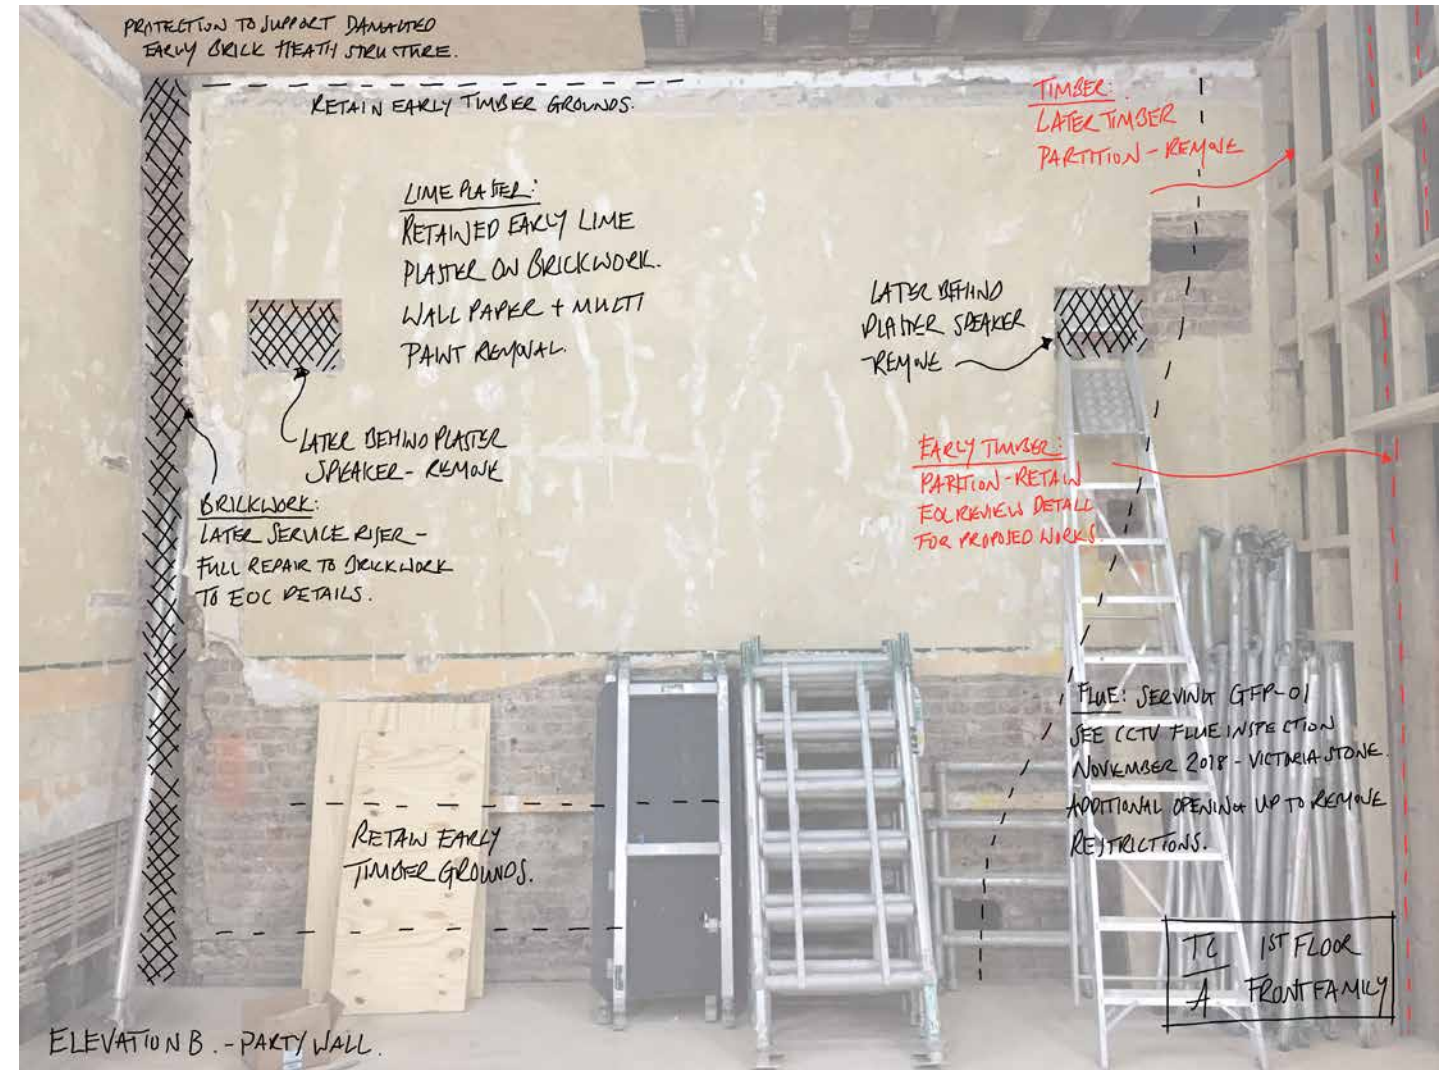 PROTECTION TO SUPPORT DAMAGED
EARLY BRICK HEATH STRUCTURE.
RETAIN EARLY TIMBER GROUNDS.
TIMBER:
LATER TIMBER
PARTITION - REMOVE
LIME PLASTER:
RETAINED EARLY LIME
PLASTER ON BRICKWORK.
WALL PAPER + MULTI
PAINT REMOVAL.
LATER BEHIND
PLASTER SPEAKER
REMOVE
LATER BEHIND PLASTER
SPEAKER - REMOVE
EARLY TIMBER:
PARTITION - RETAIN
EOC REVIEW DETAIL
FOR PROPOSED WORKS.
BRICKWORK:
LATER SERVICE RISER -
FULL REPAIR TO BRICKWORK
TO EOC DETAILS.
FLUE: SERVING GFP-01
SEE CCTV FLUE INSPECTION
NOVEMBER 2018 - VICTORIA STONE.
ADDITIONAL OPENING UP TO REMOVE
RESTRICTIONS.
RETAIN EARLY
TIMBER GROUNDS.
TC 1ST FLOOR
A FRONT FAMILY
ELEVATION B. - PARTY WALL.